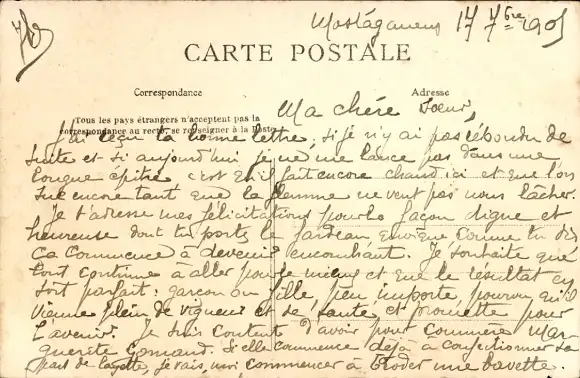 Mostaganem 17 7bre 1905
CARTE POSTALE
Correspondance
Adresse
Tous les pays étrangers n'acceptent pas la
correspondance au recto, se renseigner à la Poste
Ma chère Soeur,
J'ai reçu ta bonne lettre; si je n'y ai pas répondu de
suite et si aujourd'hui je ne me lance pas dans une
longue épître c'est qu'il fait encore chaud ici et que l'on
sue encore tant que la flemme ne veut pas nous lâcher.
Je t'adresse mes félicitations pour la façon digne et
heureuse dont tu portes le fardeau, quoique comme tu dis
ça commence à devenir encombrant. Je souhaite que
tout continue à aller pour le mieux et que le résultat en
soit parfait: garçon ou fille, peu importe, pourvu qu'il
vienne plein de vigueur et de santé et promette pour
l'avenir. Je suis content d'avoir pour commère Mar-
guerite. Si elle commence déjà à confectionner sa
part de layette, je vais, moi commencer à broder une bavette.